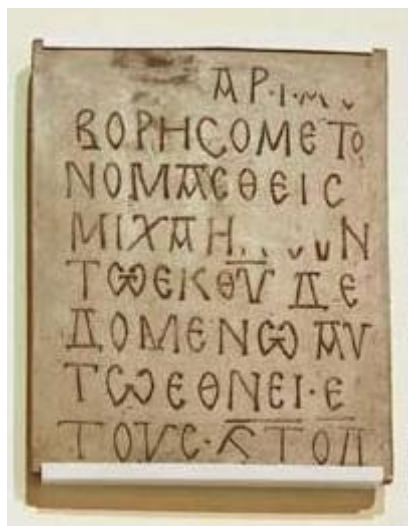 ΑΡ·Ι·
ΒΟΡΗϹΟΜΕΤΟ
ΝΟΜΑϹΘΕΙϹ
ΜΙΧΑΗ Ν
ΤΩΕΚΘ̅Υ̅ΔΕ
ΔΟΜΕΝΩΑΥ
ΤΩΕΘΝΕΙ·Ε
ΤΟΥϹ·Ϛ̅Τ̅Ο̅Δ̅